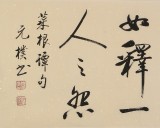 如釋一
人之怨
菜根譚句
元樸書